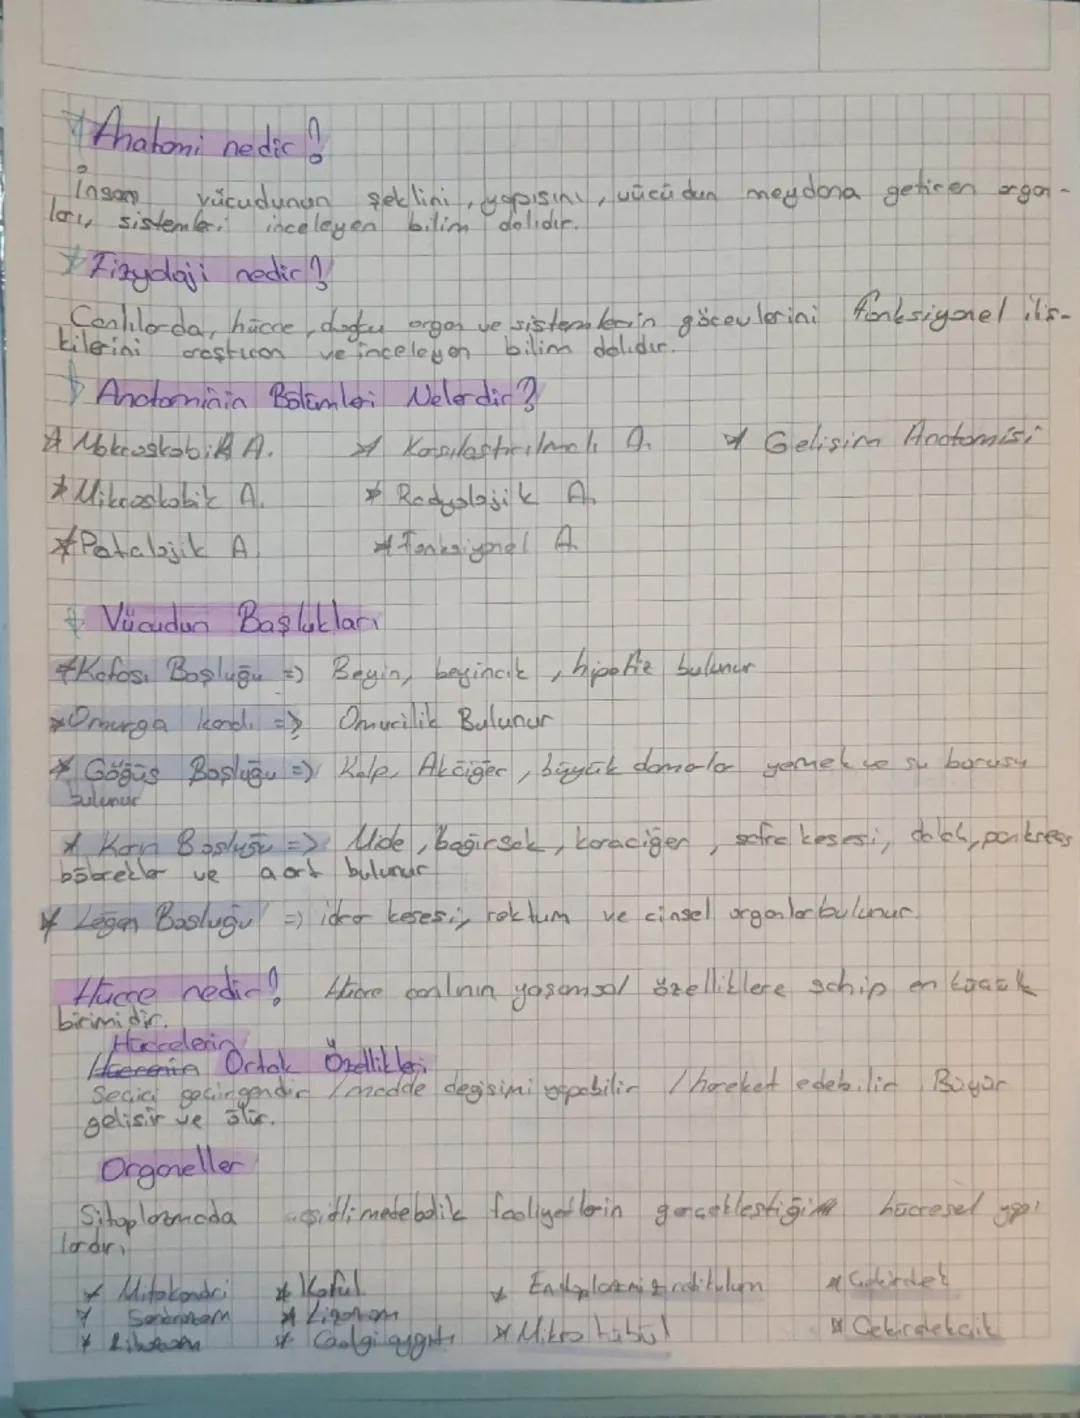 Anatomi nedir?
İnsan vücudunun şeklini, yapısını, vücüdun meydana getiren organ-
ları, sistemleri inceleyen bilim dalıdır.
Fizyoloji nedir?
Canlılarda, hücre, doku organ ve sistemlerin görevlerini fonksiyonel iliş-
kilerini araştıran ve inceleyen bilim dalıdır.
Anatominin Bölümleri Nelerdir?
* Makroskobik A. * Karşılaştırılmalı A. * Gelişim Anatomisi
* Mikroskobik A. * Radyolojik A.
* Patalojik A. * Fonksiyonel A.
Vücudun Başlukları
* Kafası Boşluğu => Beyin, beyincik, hipofiz bulunur
* Omurga kanalı => Omurilik Bulunur
* Göğüs Boşluğu => Kalp, Akciğer, büyük damarlar yemek ve su borusu
bulunur
* Karın Boşluğu => Mide, bağırsak, karaciğer, safra kesesi, dalak, pankreas
böbrekler ve aort bulunur
* Leğen Boşluğu => idrar kesesi, rektum ve cinsel organlar bulunur.
Hücre nedir? Hücre canlının yaşamsal özelliklere sahip en küçük
birimidir.
Hücrelerin
Hücrenin Ortak Özellikleri
Seçici geçirgendir / madde değişimi yapabilir / hareket edebilir Büyür
gelişir ve ölür.
Organeller
Sitoplazmada çeşitli metebolik faaliyetlerin gerçekleştiği hücresel yapı
lardır.
* Mitokondri * Koful * Endoplazmik retikulum * Çekirdek
* Sentrozom * Lizozom
* Ribozom * Goolgi aygıtı * Mikro tübül * Çekirdekçik